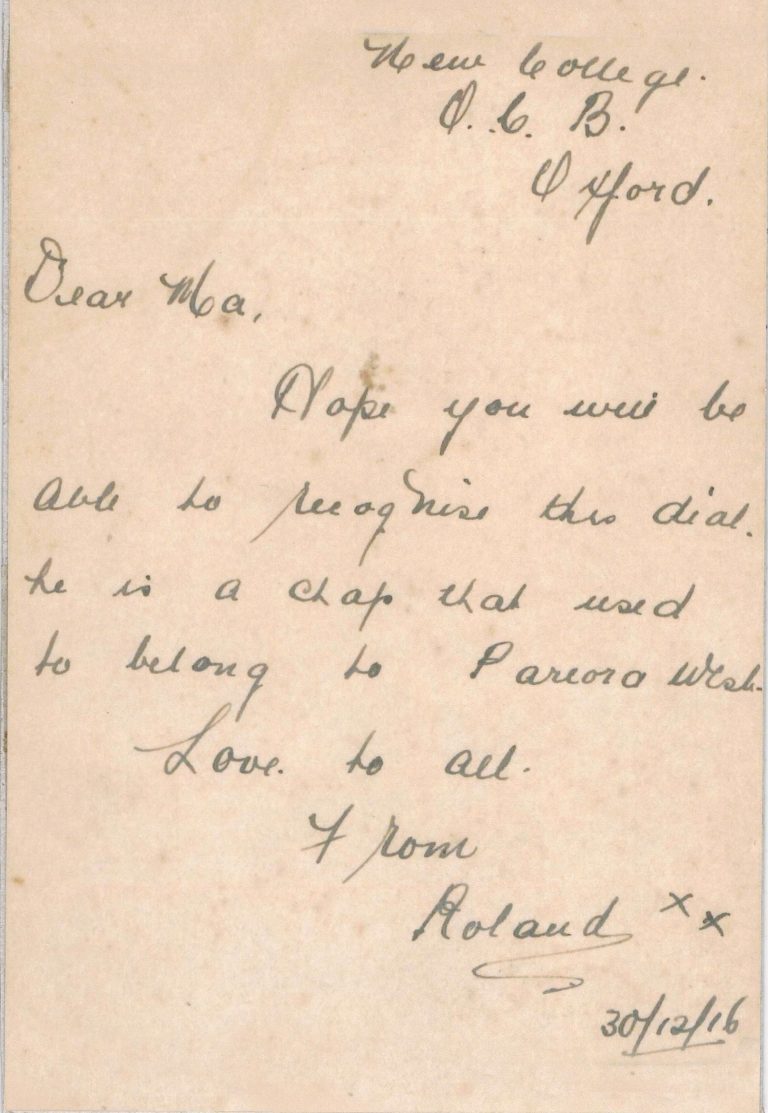 New College.
O. C. B.
Oxford.
Dear Ma,
Hope you will be
able to recognise this dial.
he is a chap that used
to belong to Pareora West.
Love to all.
From
Roland xx
30/12/16